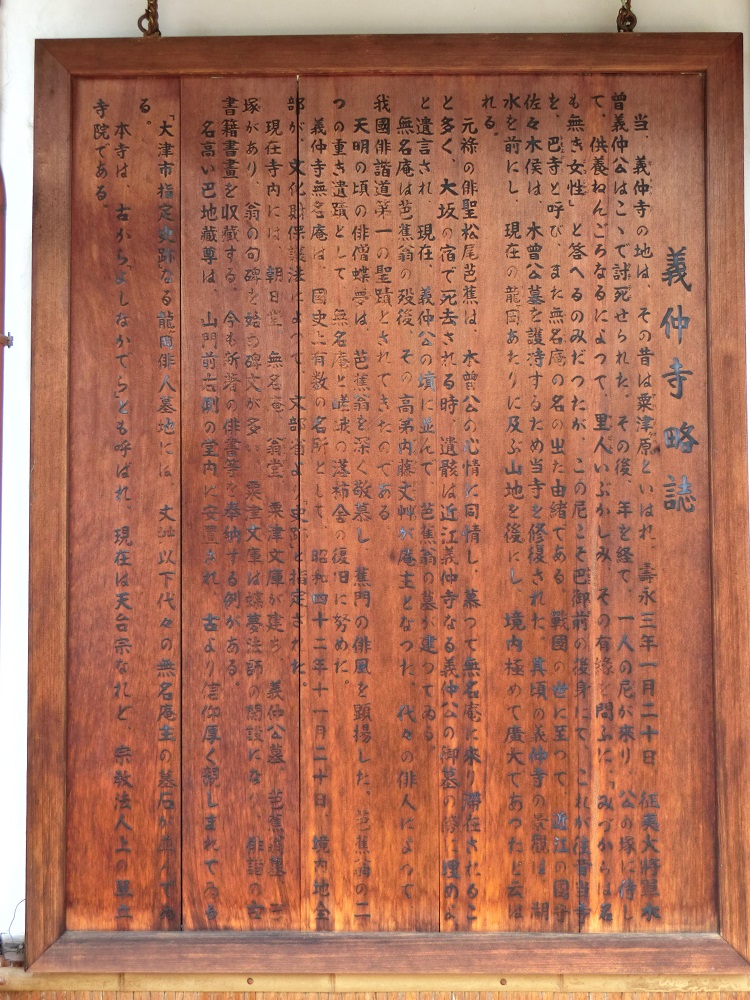 義仲寺略誌
当、義仲寺の地は、その昔は粟津原といはれ、壽永三年一月二十日、征夷大将軍木
曾義仲公はこゝで討死せられた。その後、年を経て、一人の尼が来り、公の塚に侍し
て、供養ねんごろなるによつて、里人いぶかしみ、その有縁を問ふに、「みづからは名
も無き女性」と答へるのみだつたが、この尼こそ巴御前の後身にて、これが往昔当寺
を、巴寺と呼び、また無名庵の名の出た由緒である。戰國の世に至つて、近江の国守
佐々木侯は、木曾公墓を護持するため当寺を修復された。其頃の義仲寺の景觀は、湖
水を前にし、現在の龍岡あたりに及ぶ山地を後にし、境内極めて廣大であつたと云は
れる。
元禄の俳聖松尾芭蕉は、木曾公の心情に同情し、慕つて無名庵に来り滞在されるこ
と多く、大坂の宿で死去される時、遺骸は近江義仲寺なる義仲公の御墓の隣に埋めよ、
と遺言され、現在、義仲公の墳に並んで、芭蕉翁の墓が建つてゐる。
無名庵は芭蕉翁の殁後、その高弟内藤丈艸が庵主となつた。代々の俳人によつて
我國俳諧道第一の聖蹟とされてきたのである
天明の頃の俳僧蝶夢は、芭蕉翁を深く敬慕し、蕉門の俳風を顕揚した。芭蕉翁の二
つの重き遺蹟として、無名庵と嵯峨の落柿舎の復旧に努めた。
義仲寺無名庵は、國史上有数の名所として、昭和四十二年十一月二十日、境内地全
部が、文化財保護法によつて、文部省より史跡と指定された。
現在寺内には、朝日堂、無名庵、翁堂、粟津文庫が建ち、義仲公墓、芭蕉翁墓、巴
塚があり、翁の句碑を始め碑文が多い。粟津文庫は蝶夢法師の開設になり、俳諧の古
書籍書畫を収蔵する。今も新著の俳書等を奉納する例がある。
名高い巴地蔵尊は、山門前右側の堂内に安置され、古より信仰厚く親しまれてゐる
「大津市指定史跡なる龍岡俳人墓地には、丈艸以下代々の無名庵主の墓石が並んでゐ
る。
本寺は、古から「よしなかでら」とも呼ばれ、現在は天台宗なれど、宗教法人上の單立
寺院である。